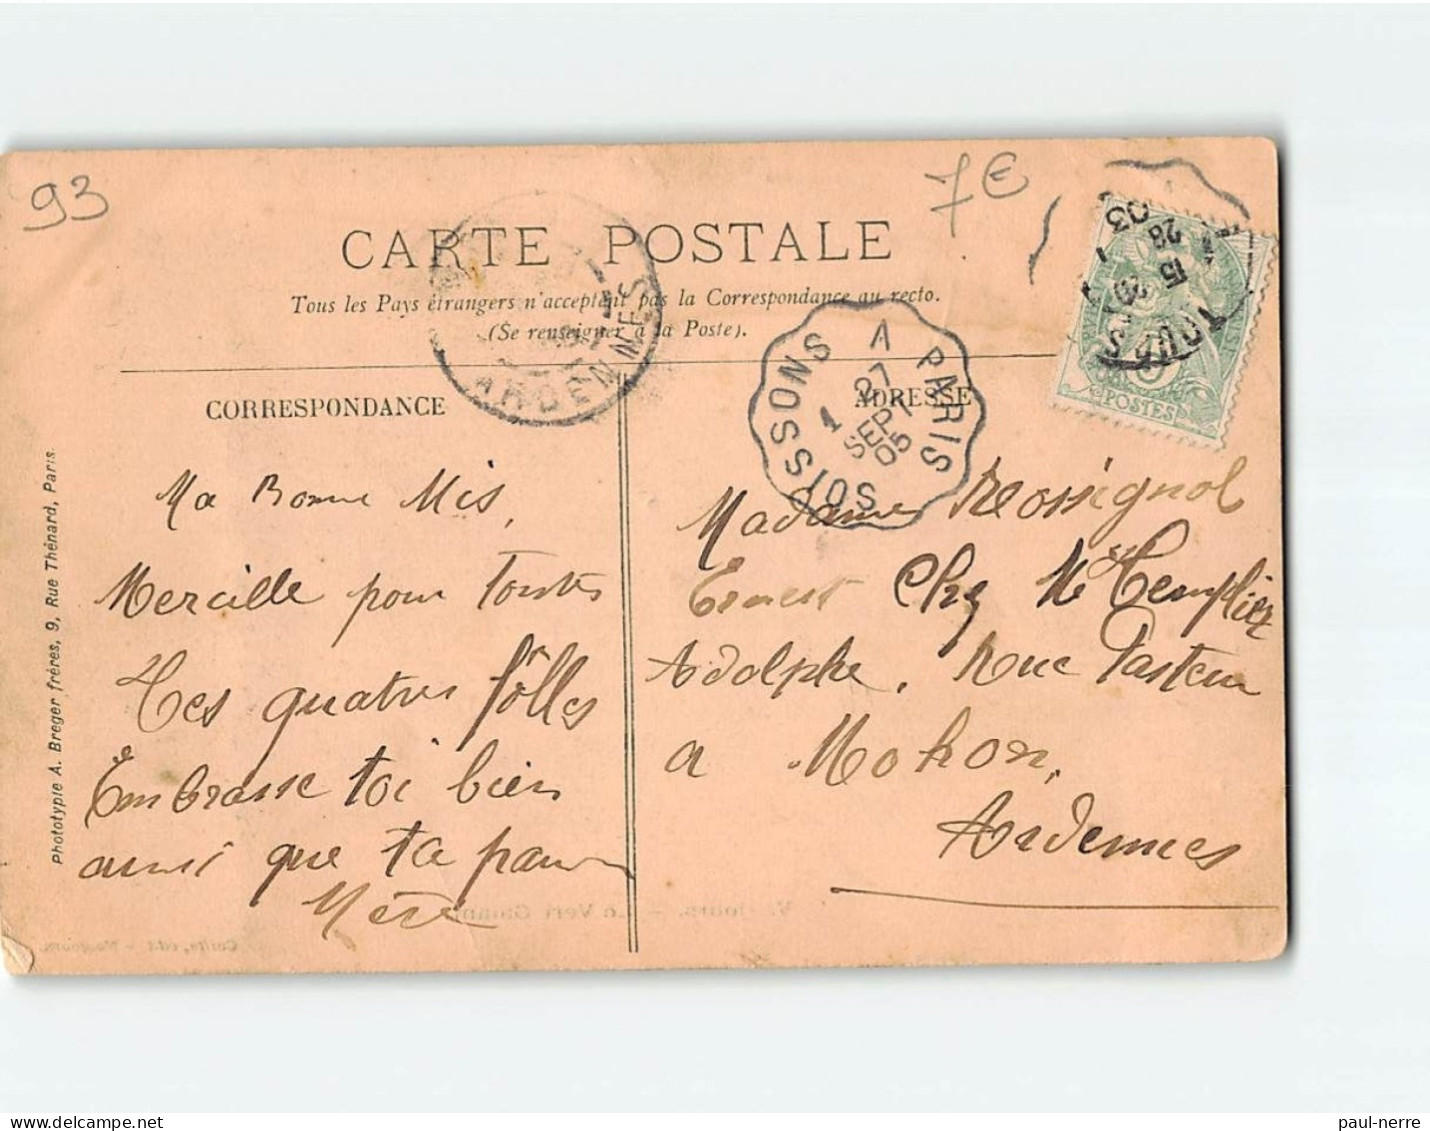 93
7€
CARTE POSTALE
Tous les Pays étrangers n'acceptent pas la Correspondance au recto.
(Se renseigner à la Poste).
ARDENNES
SOISSONS A PARIS
1
27
SEPT
05
POSTES
CORRESPONDANCE
ADRESSE
Ma Bonne Mis,
Mercille pour toutes
Tes quatres fôlles
Embrasse toi bien
ainsi que ta
Mère
Madame Rossignol
Ernest Chez Mr Templier
Adolphe, Rue Pasteur
a Mohon,
Ardennes
Phototypie A. Breger frères, 9, Rue Thénard, Paris.
paul-nerre